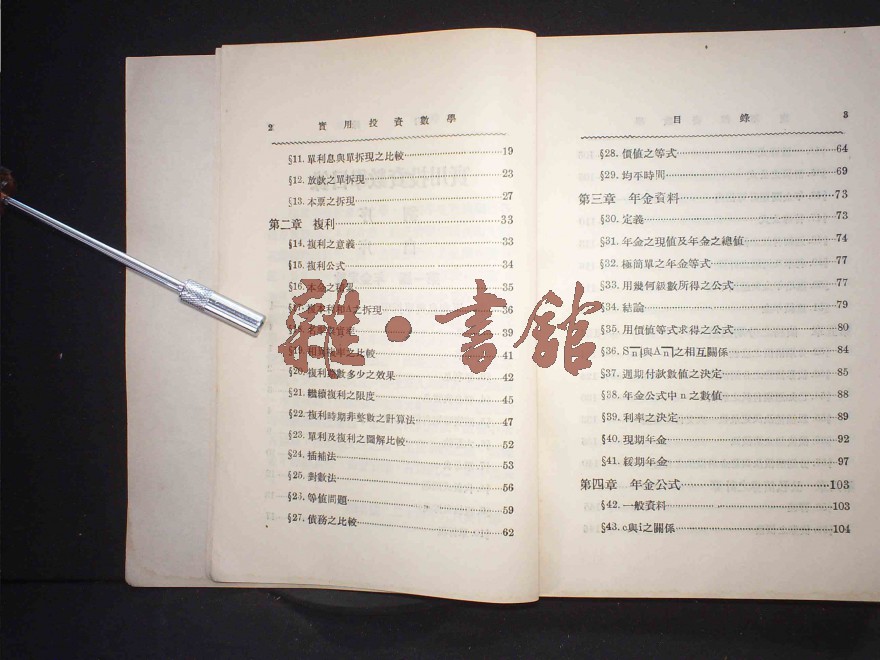 2 實用投資數學
§11. 單利息與單拆現之比較 19
§12. 放款之單拆現 23
§13. 本票之拆現 27
第二章 複利 33
§14. 複利之意義 33
§15. 複利公式 34
§16. 本金之 35
§17. 複本利和A之拆現 36
§18. 名 39
§19. 相 率之比較 41
§20. 複利 數多少之效果 42
§21. 繼續複利之限度 45
§22. 複利時期非整數之計算法 47
§23. 單利及複利之圖解比較 52
§24. 插補法 53
§25. 對數法 56
§26. 等值問題 59
§27. 債務之比較 62
雜·書館
目錄 3
§28. 價值之等式 64
§29. 均平時間 69
第三章 年金資料 73
§30. 定義 73
§31. 年金之現值及年金之總值 74
§32. 極簡單之年金等式 77
§33. 用幾何級數所得之公式 77
§34. 結論 79
§35. 用價值等式求得之公式 80
§36. Sn|與An|之相互關係 84
§37. 週期付款數值之決定 85
§38. 年金公式中n之數值 88
§39. 利率之決定 89
§40. 現期年金 92
§41. 綏期年金 97
第四章 年金公式 103
§42. 一般資料 103
§43. c與i之關係 104